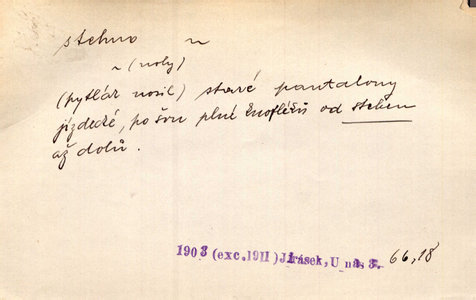 stehno ~
~ (nohy)
(pytlák nosil) staré pantalony
jízdecké, po švu plné knoflíků od stehen
až dolů.
1903 (exc. 1911) Jirásek, U nás 3. 66,18